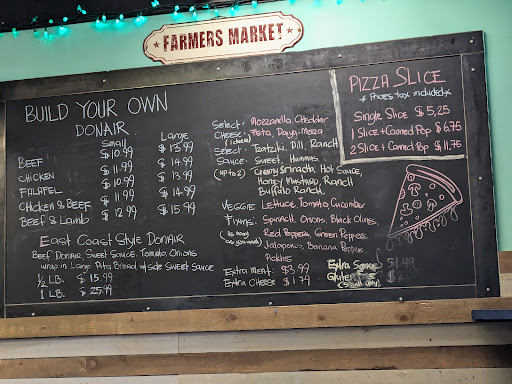 FARMERS MARKET
BUILD YOUR OWN
DONAIR
Small Large
BEEF $10.99 $15.99
CHICKEN $11.99 $14.99
FALAFEL $10.99 $13.99
CHICKEN & BEEF $11.99 $14.99
BEEF & Lamb $12.99 $15.99
East Coast Style Donair
Beef Donair, Sweet Sauce, Tomato, Onions
wrap in Large Pita Bread w/ side sweet sauce
½ LB. $15.99
1 LB. $25.99
Select Mozzarella, Cheddar
Cheese: Feta, Daiya-Mozza
(1 choice)
Select Tzatziki, Dill, Ranch
Sauce: Sweet, Hummus,
(up to 2) Creamy Sriracha, Hot Sauce,
Honey Mustard, Ranch
Buffalo Ranch
VEGGIE Lettuce, Tomato, Cucumber
Spinach, Onions, Black Olives,
(as many as you want) Red Peppers, Green Peppers
Jalapenos, Banana Peppers
Pickles
Extra meat: $3.99
Extra Cheese $1.79
Extra Sauce $1.49
Gluten Free
PIZZA SLICE
* Prices tax included *
Single Slice $5.25
1 Slice + Canned Pop $6.75
2 Slice + Canned Pop $11.75